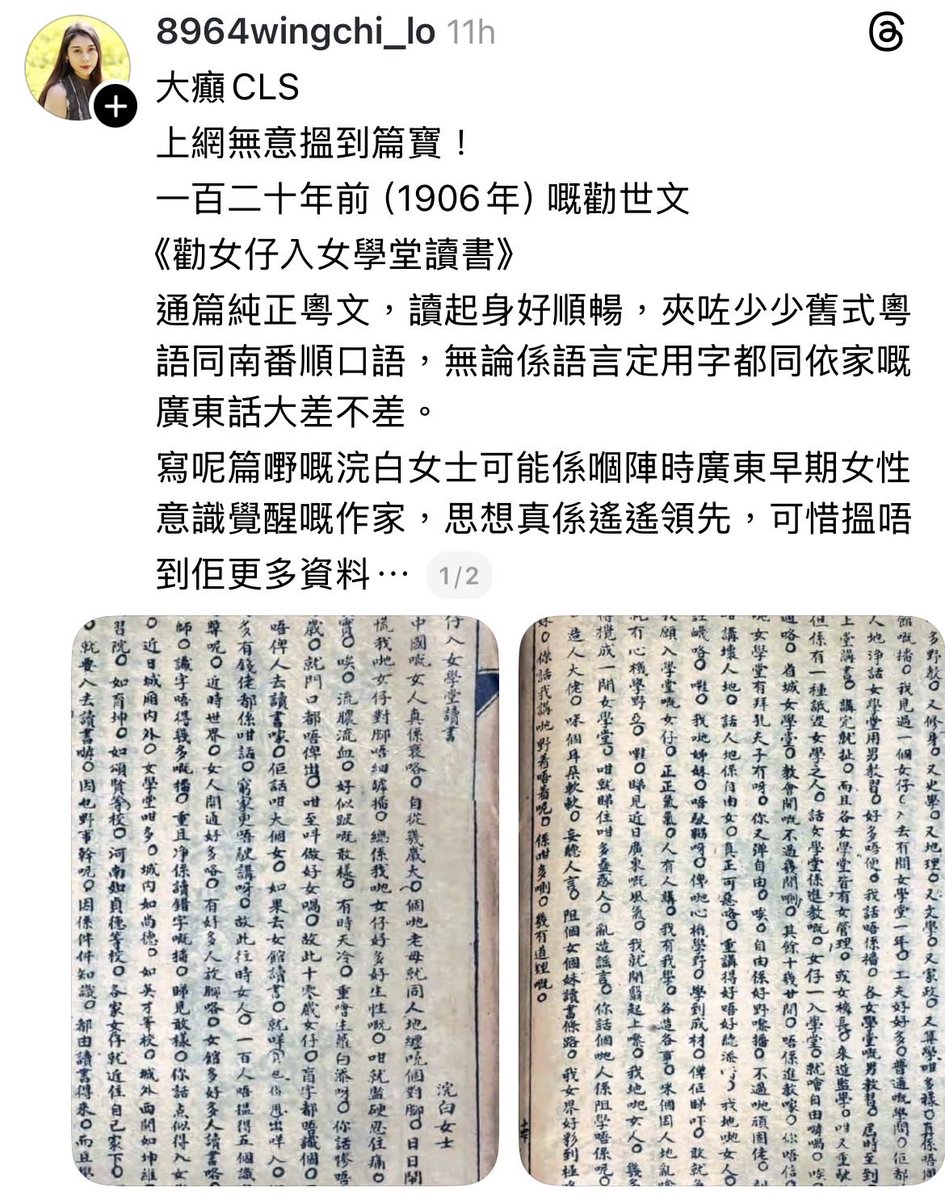 8964wingchi_lo 11h
大癲CLS
上網無意搵到篇寶！
一百二十年前（1906年）嘅勸世文
《勸女仔入女學堂讀書》
通篇純正粵文，讀起身好順暢，夾咗少少舊式粵
語同南番順口語，無論係語言定用字都同依家嘅
廣東話大差不差。
寫呢篇嘢嘅浣白女士可能係嗰陣時廣東早期女性
意識覺醒嘅作家，思想真係遙遙領先，可惜搵唔
到佢更多資料⋯
1/2
仔入女學堂讀書
浣白女士
中國嘅女人真係衰咯○自從幾歲大○個哋老母就同人地纏嗰對脚○日日鬧
慌我哋女仔對脚唔細播○總係我哋女仔好多好生性嘅○咁就監硬忍住痛○
實○唉○流膿流血○好似跛嘅敢樣○有時天冷○重噲生蔔白添呀○你話慘唔
歲○就門口都唔俾出○咁至呌做好女喎○故此十零歲女仔○盲字都唔識個○
唔俾人去讀書㗎○佢話咁大個女○如果去女館讀書○就咩出咩入○
多有錢佬都係咁話○窮家更唔駛講呀○故此往時女人○一百人唔搵得五個識
舉呢○近時世界○女人開通好多咯○有好多人放脚咯○女館多好多人讀書咯
師○識字唔得幾多嘅播○重且淨係讀錯字嘅播○睇見敢樣○你話點似得入女
○近日城廂內外○女學堂咁多○城內如尚德○如英才等校○城外西關如坤維
習院○如育坤○如頌賢等校○河南如貞德等校○各家女仔就近住自己家下○
就要入去讀書嘛○因乜野事幹呢○因係件件知識○都由讀書得來○而且學
多野教○又修身○又史學○又地理○又文學○又家政○又算學咁多樣○真係唔同
館嘅播○我見過一個女仔○入去有間女學堂一年○工夫好好多○普通嘅學問○佢都
人地淨話女學堂用男教習○好多唔便○我話唔係播○各女學堂嘅男教習○屆時至到
上堂講書○講完就扯○而且各女學堂皆有女管理○或女校長○來造監學○咁又重駛
但係有一種詆譭女學之人○話女學堂係進教嘅○女仔一入學堂○就噲自由嘅喎○唉
通咯○省城女學堂○教會開嘅不過幾間啫○其餘十幾廿間○唔係進教㗎○你唔信
哋女學堂有拜孔夫子有呀○你又彈自由○唉○自由係好野嚟播○不過哋頑固佬○
唔講壞人地○話人地係自由女○真正可惡咯○重講得好唔好聽添○我哋哋女人○
咯○嗱○我哋姊妹○唔駛嬲呀○俾哋心機學野○學到成材○俾佢睇吓○敢就
我願入學堂嘅女仔○正正氣氣○人有人講○我有我學○各造各事○咪個因人地亂噏
冇心機學野亞○嗱○睇見近日廣東嘅風氣○我就閉翳起上嚟○我地哋女人○幾多
得攪成一間女學堂○咁就睇住咁多蠱惑人○亂造謠言○你話個哋人係阻學唔係呢○
造人大佬○咪個耳朵軟軟○妄聽人言○阻個女個妹讀書條路○我女界好彩到極
○你話我講哋野着唔着呢○係咁多喇○幾有道理嘅○